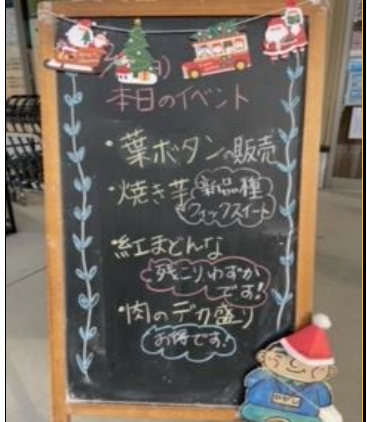 本日のイベント
・葉ボタンの販売
・焼き芋 新品種
クイックスイート
・紅まどんな
残こりわずか
です!
・肉のデカ盛り
お得です!